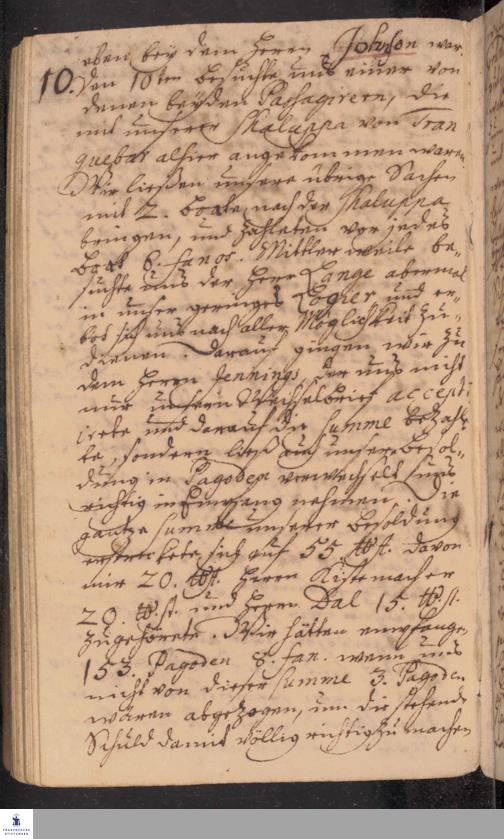 eben bey dem Herrn Johnson war.
10. Den 10ten besuchte uns einer von
denen beyden Passagirern, die
mit unserer Chaluppa von Tran
quebar alhier angekommen waren.
Wir ließen unsere übrige Sachen
mit 2. Boote nach der Chaluppa
bringen, und zahleten vor jedes
Boot 6. fanos. Mittlerweile be-
suchte uns der Herr Lange abermal
in unser geringes Logier und er-
bot sich uns nach aller Möglichkeit zu
dienen. Darauf gingen wir zu
dem Herrn Jennings, der uns nicht
nur unsern Wechselbrief accepti
irete und darauf die Summe bezahl
te, sondern ließ auch unsere Besol-
dung in Pagoden verwechselt
richtig in Empfang nehmen. Die
gantze Summe unserer Besoldung
erstreckete sich auf 55. davon
mir 20. Herrn Kistemacher
20. und Herrn Dal 15.
zugehörete. Wir hätten empfangen
153. Pagoden 8. fan. wenn uns
nicht von dieser Summe 3. Pagoden
wären abgezogen, um die stehende
Schuld damit völlig richtig zu machen
FRANCKESCHE
STIFTUNGEN